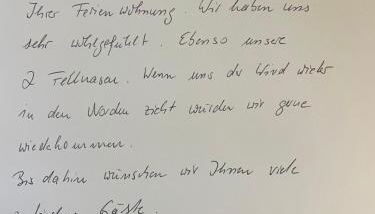 Ihrer Ferienwohnung. Wir haben uns
sehr wohlgefühlt. Ebenso unsere
2 Fellnasen. Wenn uns der Wind wieder
in den Norden zieht würden wir gerne
wiederkommen.
Bis dahin wünschen wir Ihnen viele
Gäste.